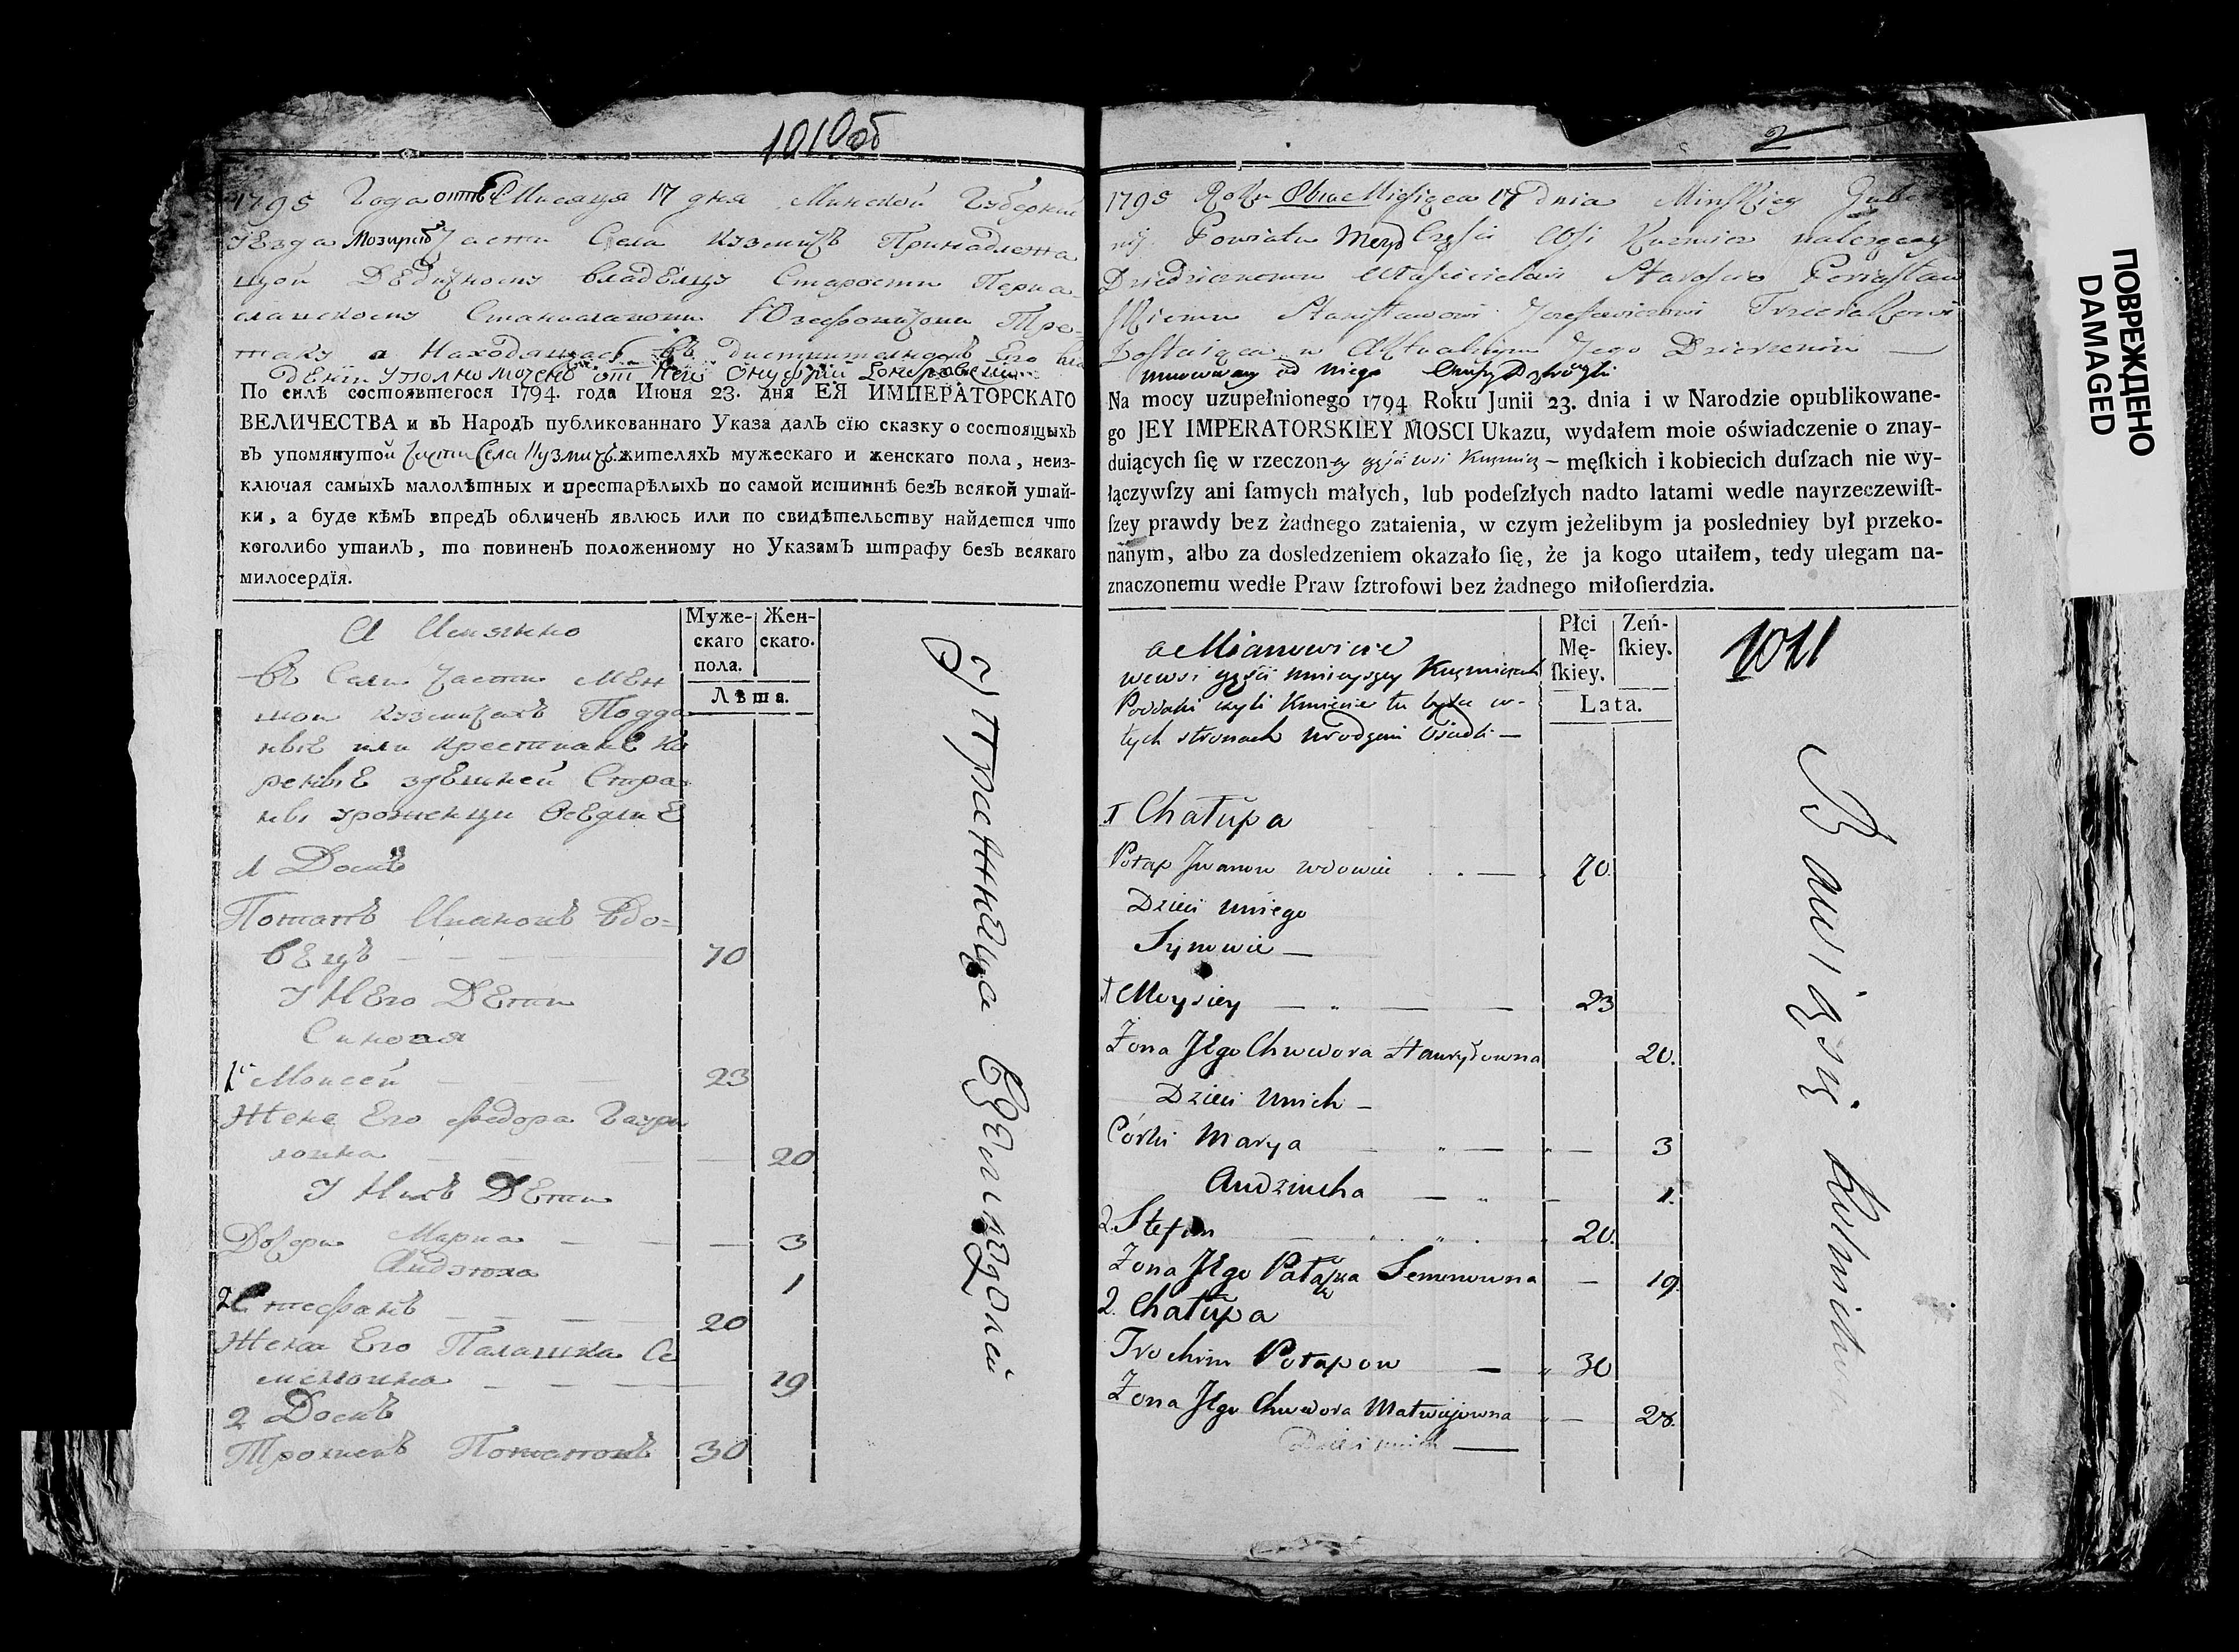 1010об
1795 Года Месяца 17 дня Минской Губернии
уезда Мозирс Части Села Кузмичъ Принадлежа
щой Дедичному владелцу Старости Переа
славскому Станиславови Юзефовичови Тре
таку а находящась въ Его вла
дении уполномочено от него Онуфрий
По силѣ состоявшегося 1794. года Июня 23. дня ЕЯ ИМПЕРАТОРСКАГО
ВЕЛИЧЕСТВА и вЪ НародЪ публикованнаго Указа далЪ сїю сказку о состоящыхЪ
вЪ упомянутой части Села Кузмичъ жителяхЪ мужескаго и женскаго пола, неиз-
ключая самыхЪ малолѣтных и престарѣлыхЪ по самой истиннѣ безЪ всякой утай-
ки, а буде кѣмЪ впредЪ обличенЪ явлюсь или по свидѣтельству найдется что
коголибо утаилЪ, то повиненЪ положенному по УказамЪ штрафу безЪ всякаго
милосердїя.
А Имянно
Муже-
скаго
пола.
Жен-
скаго.
Лѣта.
въ Сели части Мен
шои Кузмичахъ Подда
ные или крестиане Ко
реные здешней Стра
ны уроженци оседли
1 Домъ
Потапъ Ивановъ Вдо=
вецъ 70
У Него Дети
Синовя
1 Моисей 23
Жена Его Федора Гаври
ловна 20
У Нихъ Дети
Дочери Мариа 3
Андзюха 1
2 Стефанъ 20
Жена Его Палашка Се
меновна 19
2 Домъ
Трохимъ Потаповъ 30
2
1795 Roku Miesiąca 17 Dnia Minskiey Gube
nij Powiatu Mozyr Części Wsi Kuzmicz należącey
Dziedzicznemu Właścicielowi Staroscie Periasław
skiemu Stanisławowi Jozefowiczowi Trzeciakowi
Zostaiąca w Aktualnym Jego Dzierżeniu
umocowany od niego
Na mocy uzupełnionego 1794 Roku Junii 23. dnia i w Narodzie opublikowane-
go JEY IMPERATORSKIEY MOSCI Ukazu, wydałem moie oświadczenie o znay-
duiących ſię w rzeczoney części wsi Kuzmicz – męſkich i kobiecich duſzach nie wy-
łączywſzy ani ſamych małych, lub podeſzłych nadto latami wedle nayrzeczewiſt-
ſzey prawdy bez żadnego zataienia, w czym jeżelibym ja posledniey był przeko-
nanym, albo za dosledzeniem okazało ſię, że ja kogo utaiłem, tedy ulegam na-
znaczonemu wedle Praw ſztrofowi bez żadnego miłoſierdzia.
a Mianowicie
Płci
Mę-
ſkiey.
Zeń-
ſkiey.
Lata.
1011
we wsi części mnieyszey Kuzmiczach
Poddani czyli Kmiecie tu w
tych stronach urodzeni Osiadli —
1 Chałupa
Potap Jwanow wdowiec 70.
Dzieci uniego
Synowie —
1 Moysiey 23
Żona Jego Chwedora Hauryłowna 20.
Dzieci unich —
Córki Marya 3
Andziucha 1.
2. Stefan 20.
Żona Jego Pałaszka Semenowna 19.
2. Chałupa
Trochim Potapow 30
Żona Jego Chwedora Matwiejowna 28.
Dzieci unich —